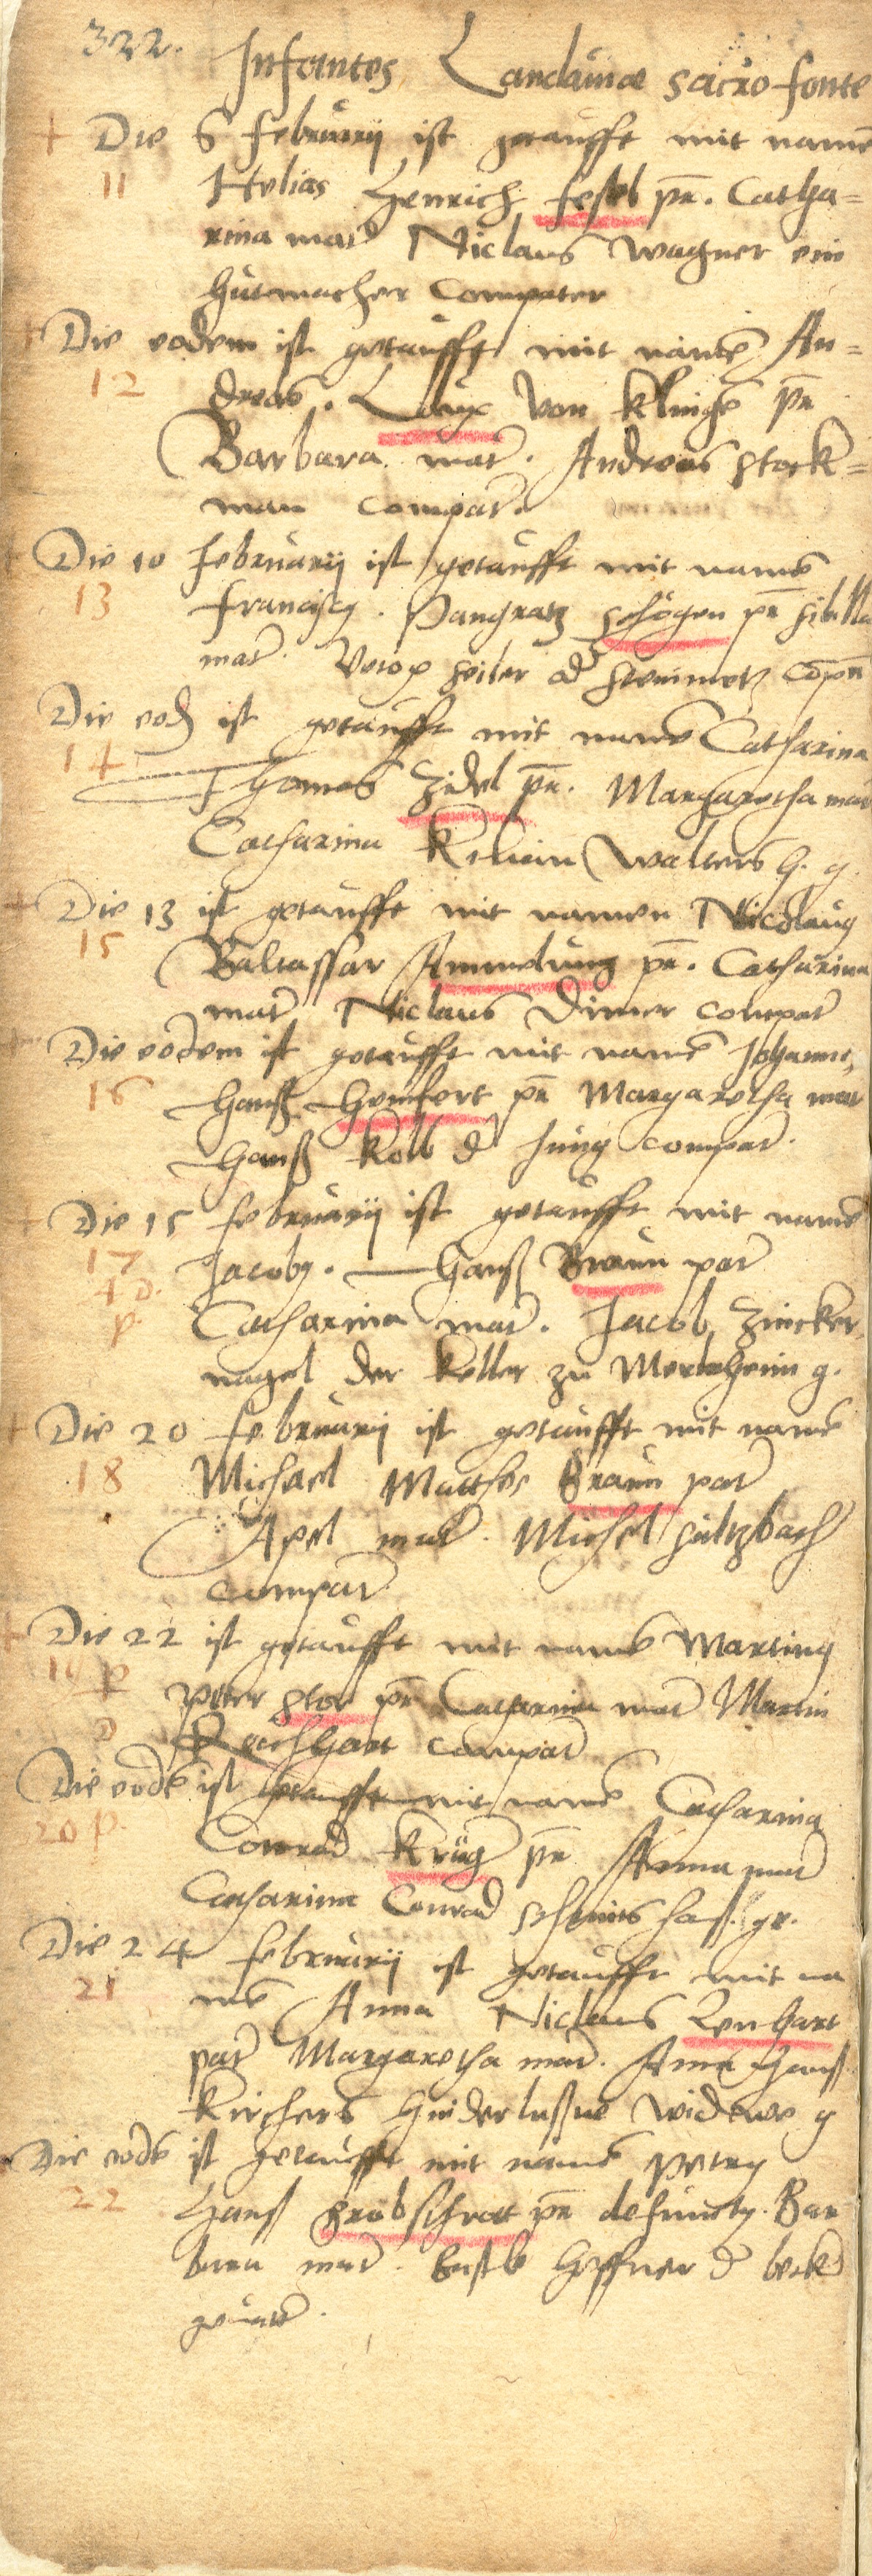 322.
Infantes Landauiæ sacro fonte
+ Die 6 februarij ist getaufft mit namē
11 Helias Henrich fesel pr̄. Catha=
rina mat Niclaus wagner ein
hutmacher Compater
+ Die eodem ist getaufft mit namē An=
12 dreas. Laux von Klingē pr̄
Barbara mat. Andreas Stock=
man compat.
+ Die 10 februarij ist getaufft mit namē
13 Franciscq. Pangratz schögen pr̄ Sibilla
mat. seiler od Steinmetz Compr̄
Die eod ist getaufft mit namē Catharina
14 Thomas Zidel pr̄. Margaretha mat
Catharina Kilian Walters h. g.
+ Die 13 ist getaufft mit namen Nicolaug
15 Baltassar Ammelung pr̄. Catharina
mat Niclaus Dimer compat
+ Die eodem ist getaufft mit namē Johannes
16 Hanß Hemfert pr̄ Margaretha mat
Hanß Kolb d Jung compat.
+ Die 15 februarij ist getaufft mit namē
17 Jacobg. Hanß Braun pat
+ D.
p. Catharina mat. Jacob Zincker
nagel der Keller zu Merleheim g.
+ Die 20 februarij ist getaufft mit namē
18 Michael Matthes Braun pat
Apel mat. Michel Sultzbach
compat
+ Die 22 ist getaufft mit namē Marting
19 p Peter Stor pr̄ Catharina mat Martin
D Reichhart compat
Die eodē ist getaufft mit namē Catharina
20 p. Conrad Krüg pr̄ Anna mat
Catharina Conrad Schmits hauß. gr.
Die 24 februarij ist getaufft mit na
21 mē Anna Niclaus Lenhart
pat Margaretha mat. Anna Hanß
Kirchers hinderlaßne widewe g
Die eodē ist getaufft mit namē Petrg
22 Hanß Grobschrot pr̄ defunctg. Bar
bara mat. Hoffner d beck
geuatt.